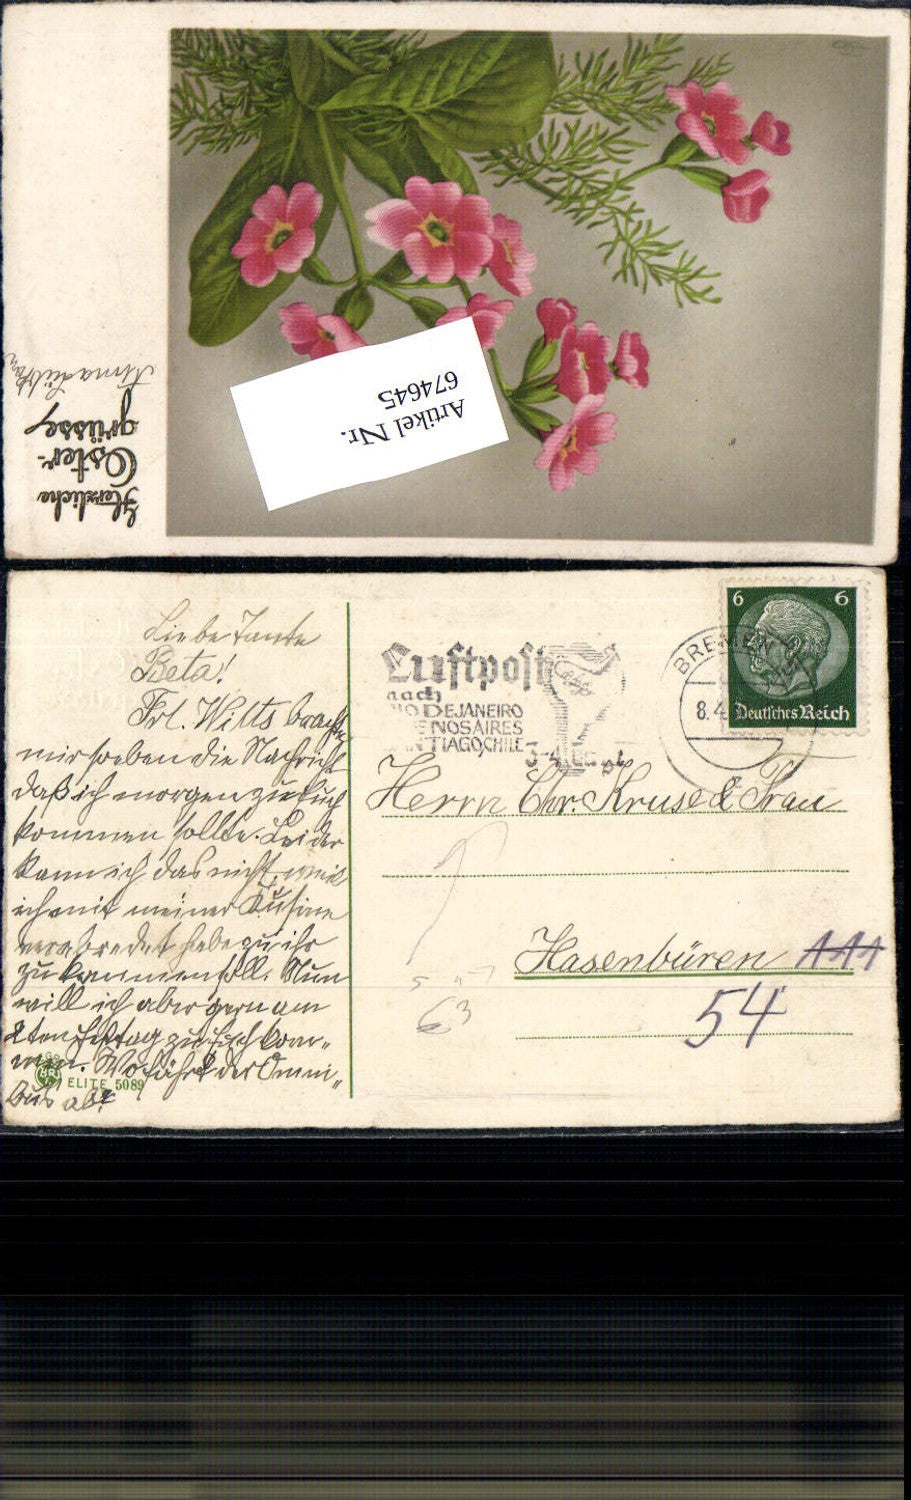 Herzliche
Oster-
grüsse
Anna
Artikel Nr.
674645
Liebe Tante
Beta!
Frl. Wilts brachte
mir soeben die Nachricht
daß ich morgen zu Euch
kommen sollte. Leider
kann ich das nicht, weil
ich mit meiner Kusine
verabredet habe zu ihr
zu kommen soll. Nun
will ich aber gern am
2ten Festtag zu Euch kom-
men. Wo fährt der Omni-
bus ab?
BRI
ELITE 5089
Luftpost
nach
RIO DE JANEIRO
BUENOS AIRES
SANTIAGO CHILE
3-4
BREMEN
8.4
6 6
Deutsches Reich
Herrn Chr. Kruse & Frau
Hasenbüren
54
63